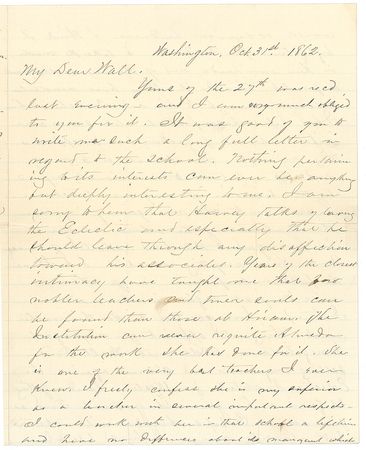 Washington, Oct. 31st 1862.
My Dear Wall.
Yours of the 27th was recd
last evening and I am very much obliged
to you for it. It was good of you to
write me such a long full letter in
regard to the school. Nothing pertain
ing to its interests can ever be anything
but deeply interesting to me. I am
sorry to hear that Harvey talks of leaving
the Eclectic and especially that he
should leave through any disaffection
toward his associates. Years of the closest
intimacy have taught me that no
nobler teachers and truer souls can
be found than those at Hiram. The
Institution can never requite Almeda
for the work she has done for it. She
is one of the very best teachers I ever
knew. I freely confess she is my superior
as a teacher in several important respects.
I could work with her in that school a lifetime
and have no differences about its management which